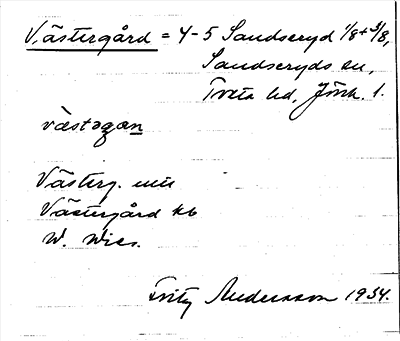 V. ästergård = 4-5 Sandseryd 1/8 + 3/8,
Sandseryds sn,
Tveta hd, Jönk. l.
væstəgan
Västerg.
Västergård kb
W. Wies.
Fritz Andersson 1934.